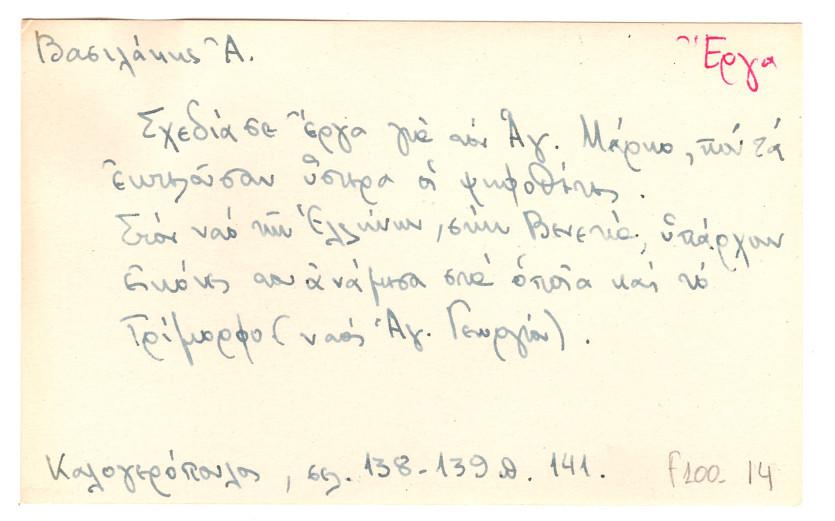 Βασιλάκης Ἀ. Ἔργα
Σχεδίασε ἔργα γιὰ τὸν Ἅγ. Μάρκο, ποὺ τά
ἐκτελοῦσαν ὕστερα οἱ ψηφοθέτες.
Στόν ναό τῶν Ἑλλήνων, στὴν Βενετία, ὑπάρχουν
εἰκόνες του ἀνάμεσα στὰ ὁποῖα καί τό
Τρίμορφο (ναός Ἁγ. Γεωργίου).
Καλογερόπουλος, σελ. 138-139. 141.
f100 14